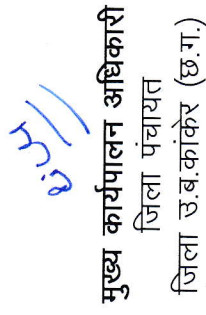 मुख्य कार्यपालन अधिकारी
जिला पंचायत
जिला उ.ब.कांकेर (छ.ग.)